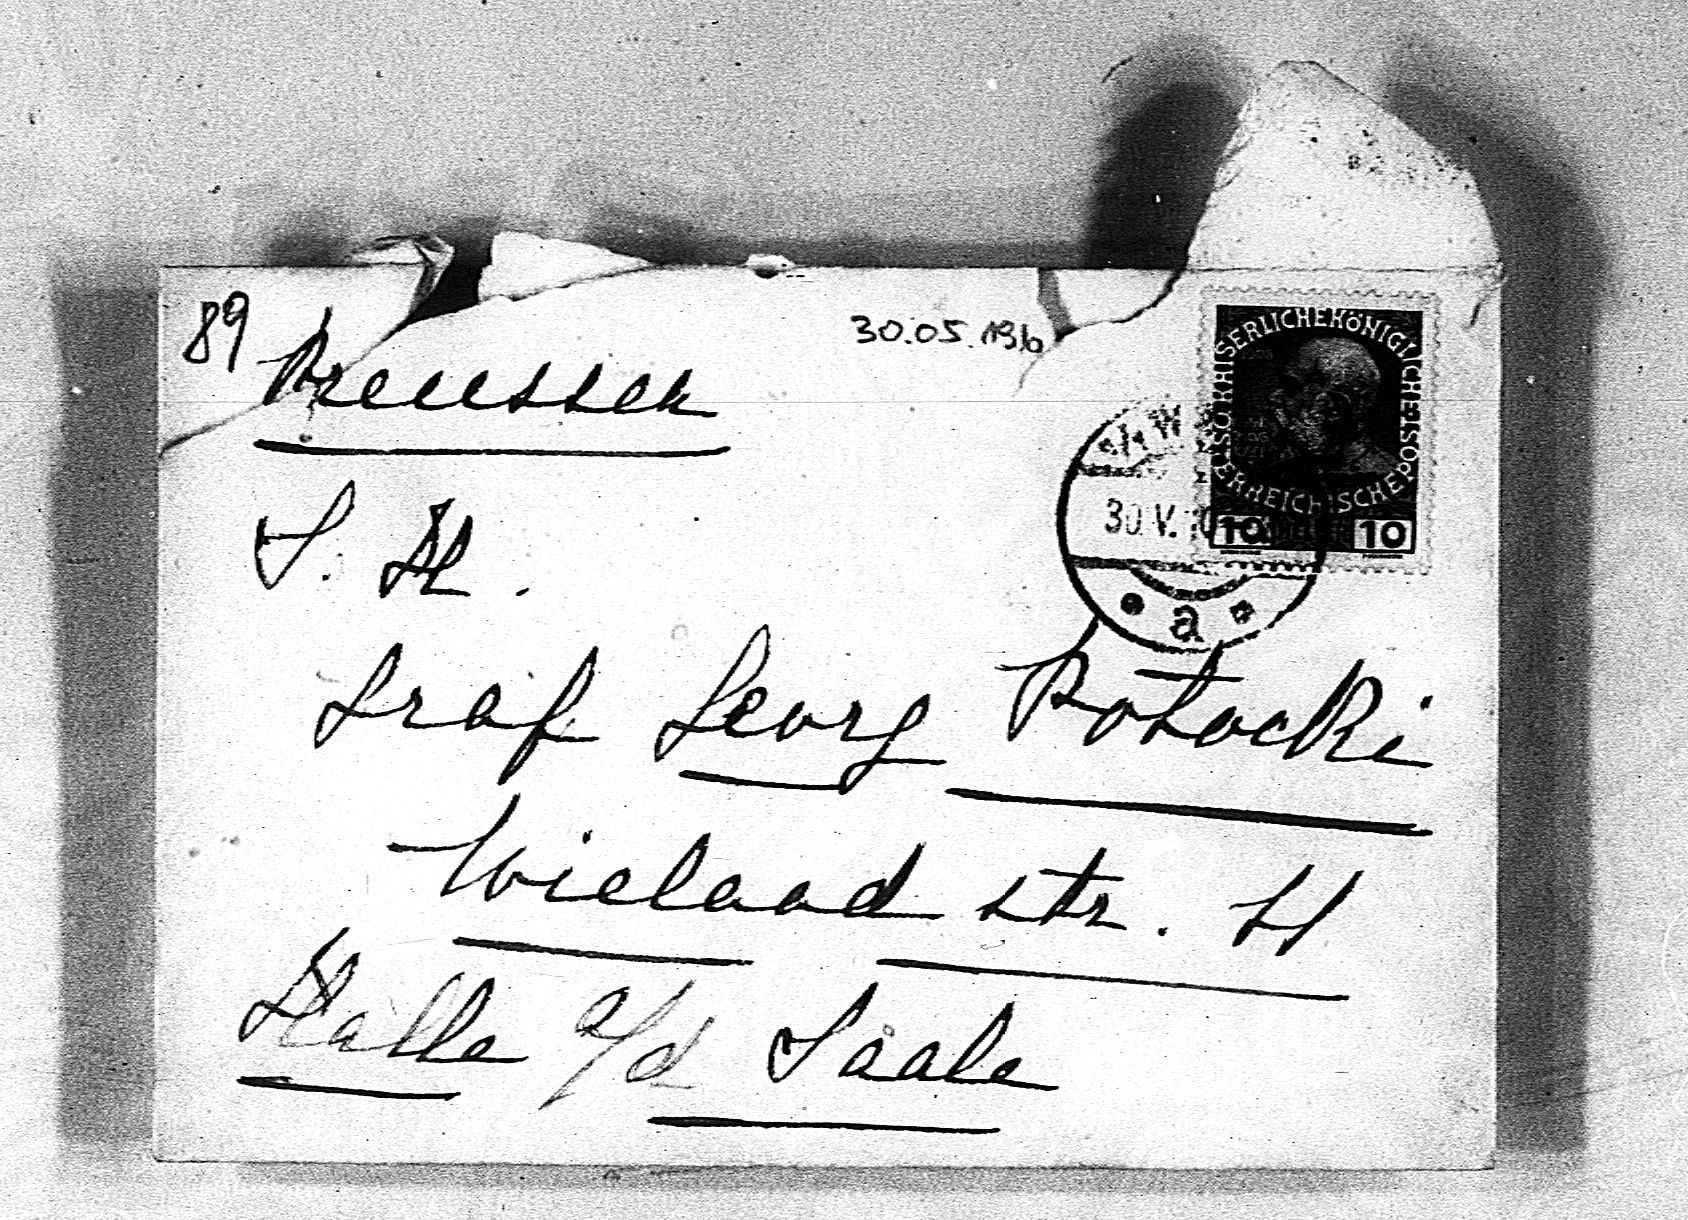 89
30.05.1910
Preussen
S. H.
Graf Georg Potocki
Wieland str. 11
Halle a/d Saale
KAISERLICHE KÖNIGLICHE ÖSTERREICHISCHE POST
10 10
30.V.10
a